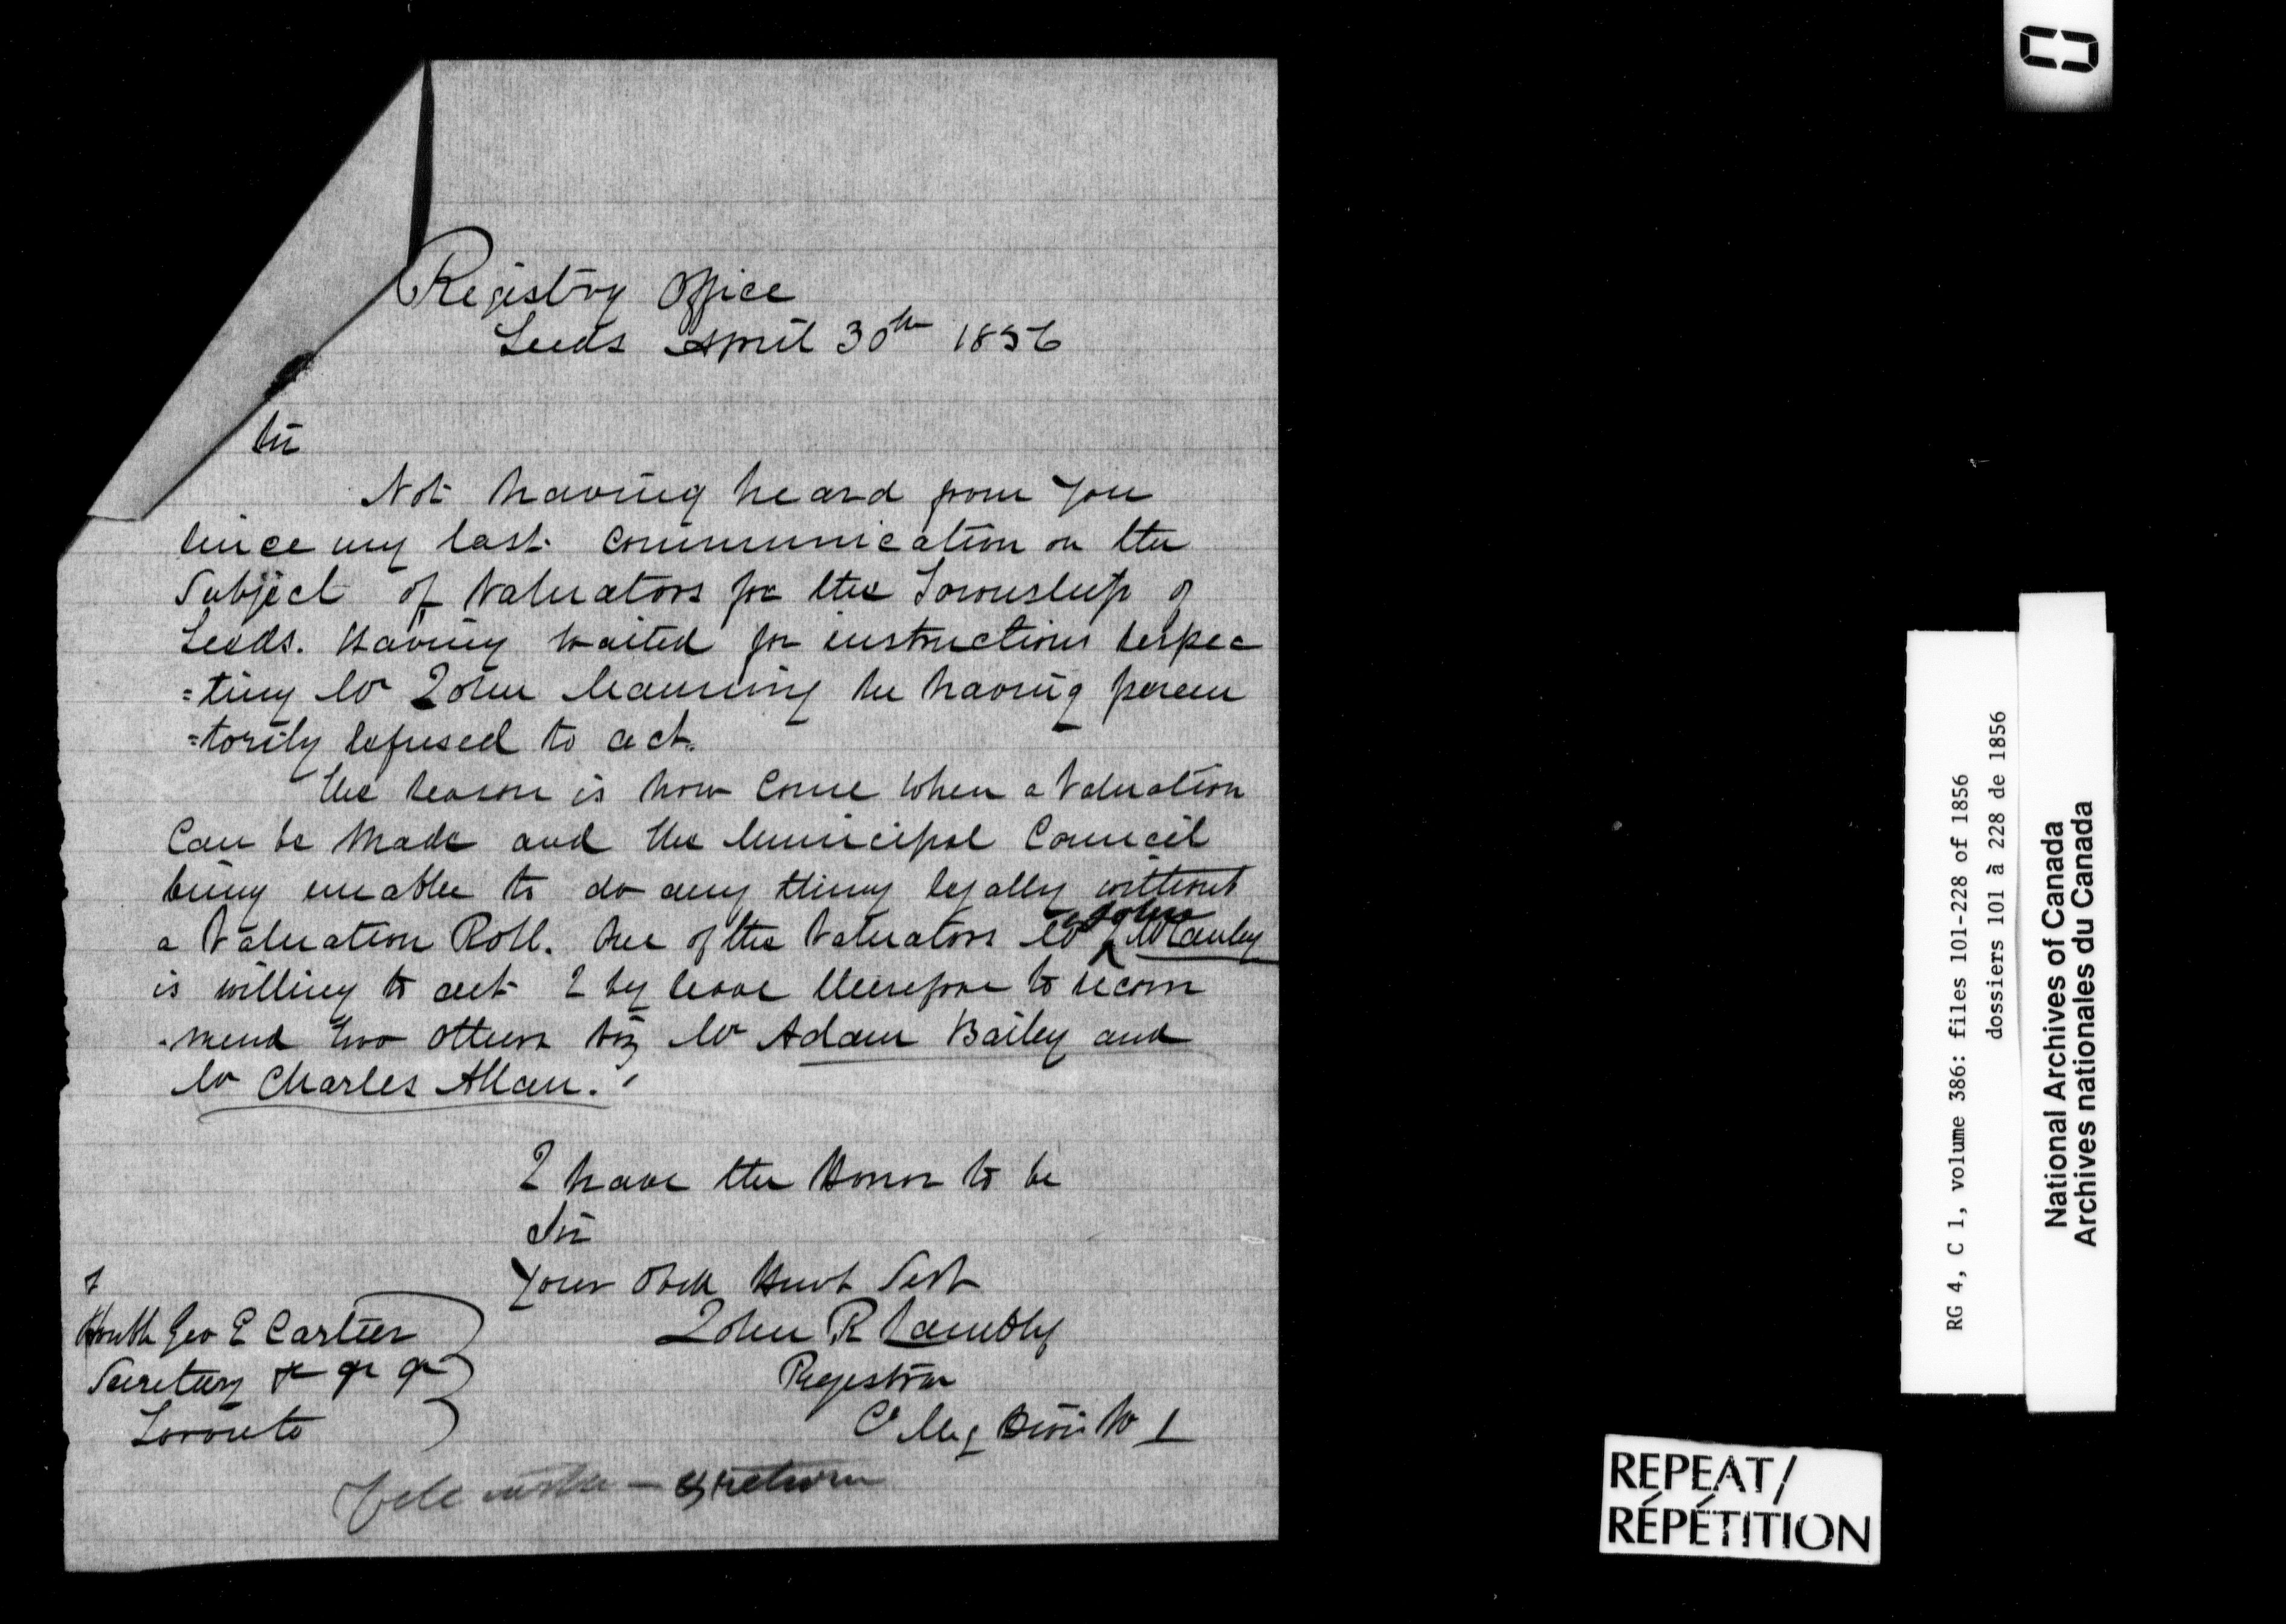 Registry Office
Leeds April 30th 1856
Sir
Not having heard from you
since my last communication on the
Subject of Valuators for the Township of
Leeds. Having waited for instructions respec
=ting Mr John Manning he having perem
=torily refused to act.
The season is now come when a Valuation
can be made and the Municipal Council
being unable to do any thing legally without
a Valuation Roll. One of the Valuators Mr John McCauley
is willing to act I beg leave therefore to recom
-mend two others viz Mr Adam Bailey and
Mr Charles Allan.
I have the Honor to be
Sir
Your Obed Humb Sert
John R Lambly
Registrar
Co Meg Divn No 1
Honble Geo E Cartier
Secretary &c &c &c
Toronto
RG 4, C 1, volume 386: files 101-228 of 1856
dossiers 101 à 228 de 1856
National Archives of Canada
Archives nationales du Canada
REPEAT/
RÉPÉTITION